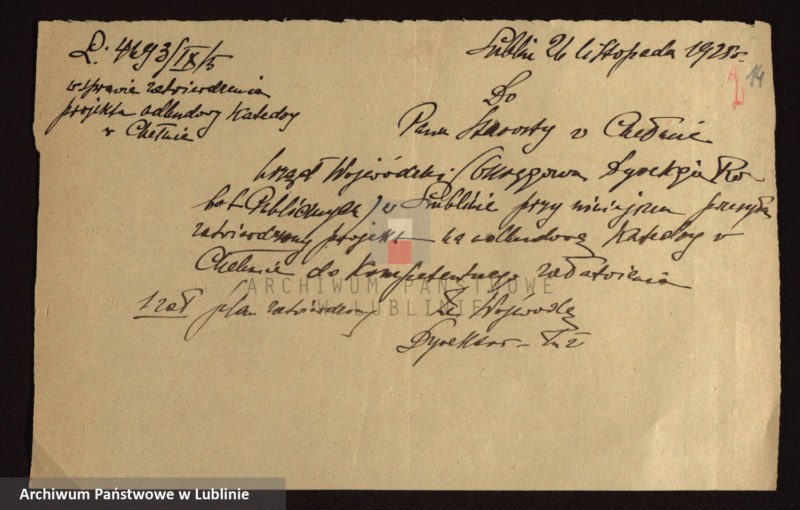 L: 4693/IX/5
w sprawie zatwierdzenia
projektu odbudowy Katedry
w Chełmie
Lublin 26 listopada 1925 r.
14
Do
Pana Starosty w Chełmie
Urząd Wojewódzki (Okręgowa Dyrekcja Ro-
bót Publicznych) w Lublinie przy niniejszem przesyła
zatwierdzony projekt na odbudowę Katedry w
Chełmie do kompetentnego załatwienia
1 zał plan zatwierdzony
Za Wojewodę
Dyrektor
ARCHIWUM PAŃSTWOWE
W LUBLINIE
Archiwum Państwowe w Lublinie